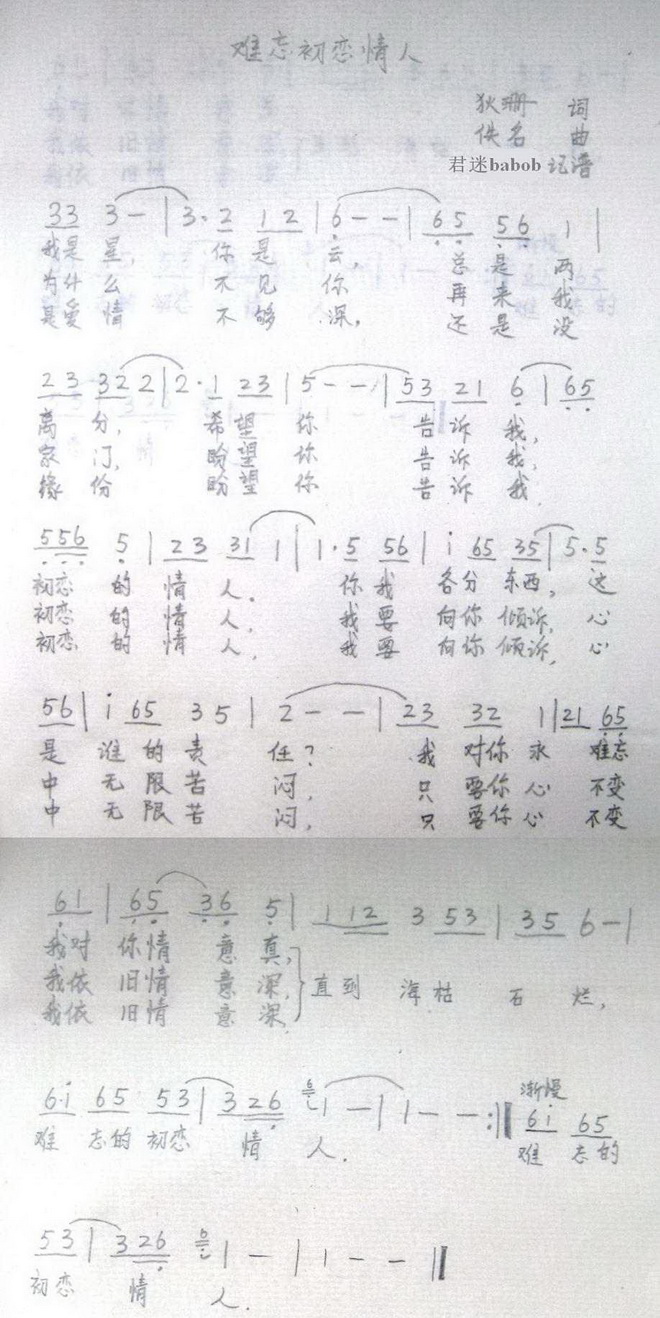 难忘初恋情人
狄珊 词
佚名 曲
君迷babob 记谱
33 3 - | 3· 2 12 | 6 - - | 65 56 1 |
我是星, 你是云, 总是两
为什么 不见你 再来我
是爱情 不够深, 还是没
23 322 | 2·1 23 | 5 - - | 53 21 6 | 65
离分, 希望你 告诉我,
家门, 盼望你 告诉我,
缘份 盼望你 告诉我
556 5 | 23 31 1 | 1·5 56 | i 65 35 | 5·5
初恋的情人. 你我各分东西, 这
初恋的情人, 我要向你倾诉, 心
初恋的情人, 我要向你倾诉, 心
56 | i 65 35 | 2 - - | 23 32 1 | 21 65
是谁的责任? 我对你永难忘
中无限苦闷, 只要你心不变
中无限苦闷, 只要你心不变
61 | 65 36 5 | 112 3 53 | 35 6 - |
我对你情意真,
我依旧情意深, 直到海枯石烂,
我依旧情意深
渐慢
6·i 65 53 | 326 6 1 - | 1 - - :‖ 6i 65
难忘的初恋情人. 难忘的
53 | 326 6 1 - | 1 - - ‖
初恋情人.